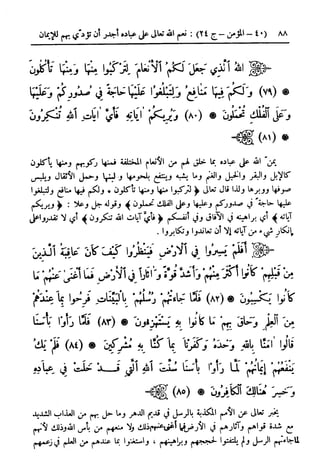 ٨٨ (٤٠ – المؤمن – ج ٢٤) : نعم الله تعالى على عباده أجدر أن تؤدي بهم للإيمان
اللَّهُ الَّذِي جَعَلَ لَكُمُ الْأَنْعَامَ لِتَرْكَبُوا مِنْهَا وَمِنْهَا تَأْكُلُونَ
(٧٩) وَلَكُمْ فِيهَا مَنَافِعُ وَلِتَبْلُغُوا عَلَيْهَا حَاجَةً فِي صُدُورِكُمْ وَعَلَيْهَا
وَعَلَى الْفُلْكِ تُحْمَلُونَ (٨٠) وَيُرِيكُمْ آيَاتِهِ فَأَيَّ آيَاتِ اللَّهِ تُنْكِرُونَ
(٨١)
يمن الله على عباده بما خلق لهم من الأنعام المختلفة فمنها ركوبهم ومنها يأكلون
كالإبل والبقر والخيل والغنم وما يشبه وينتفع بلحومها ولبنها وحمل الأثقال ويلبس
صوفها ووبرها ولذا قال تعالى ﴿لتركبوا منها ومنها تأكلون • ولكم فيها منافع ولتبلغوا
عليها حاجة في صدوركم وعليها وعلى الفلك تحملون﴾ وقوله جل وعلا : ﴿ويريكم
آياته﴾ أي براهينه في الآفاق وفي أنفسكم ﴿فأي آيات الله تنكرون﴾ أي لا تقدروا على
إنكار شيء من آياته إلا أن تعاندوا وتكابروا .
أَفَلَمْ يَسِيرُوا فِي الْأَرْضِ فَيَنْظُرُوا كَيْفَ كَانَ عَاقِبَةُ الَّذِينَ
مِنْ قَبْلِهِمْ كَانُوا أَكْثَرَ مِنْهُمْ وَأَشَدَّ قُوَّةً وَآثَارًا فِي الْأَرْضِ فَمَا أَغْنَى عَنْهُمْ مَا
كَانُوا يَكْسِبُونَ (٨٢) فَلَمَّا جَاءَتْهُمْ رُسُلُهُمْ بِالْبَيِّنَاتِ فَرِحُوا بِمَا عِنْدَهُمْ
مِنَ الْعِلْمِ وَحَاقَ بِهِمْ مَا كَانُوا بِهِ يَسْتَهْزِئُونَ (٨٣) فَلَمَّا رَأَوْا بَأْسَنَا
قَالُوا آمَنَّا بِاللَّهِ وَحْدَهُ وَكَفَرْنَا بِمَا كُنَّا بِهِ مُشْرِكِينَ (٨٤) فَلَمْ يَكُ
يَنْفَعُهُمْ إِيمَانُهُمْ لَمَّا رَأَوْا بَأْسَنَا سُنَّتَ اللَّهِ الَّتِي قَدْ خَلَتْ فِي عِبَادِهِ
وَخَسِرَ هُنَالِكَ الْكَافِرُونَ (٨٥)
يخبر تعالى عن الأمم المكذبة بالرسل في قديم الدهر وما حل بهم من العذاب الشديد
مع شدة قواهم وآثارهم في الأرض فما أغنى عنهم ذلك ولا منعهم من بأس الله وذلك لأنهم
لما جاءتهم الرسل ولم يلتفتوا لحججهم وبراهينهم ، واستغنوا بما عندهم من العلم في زعمهم